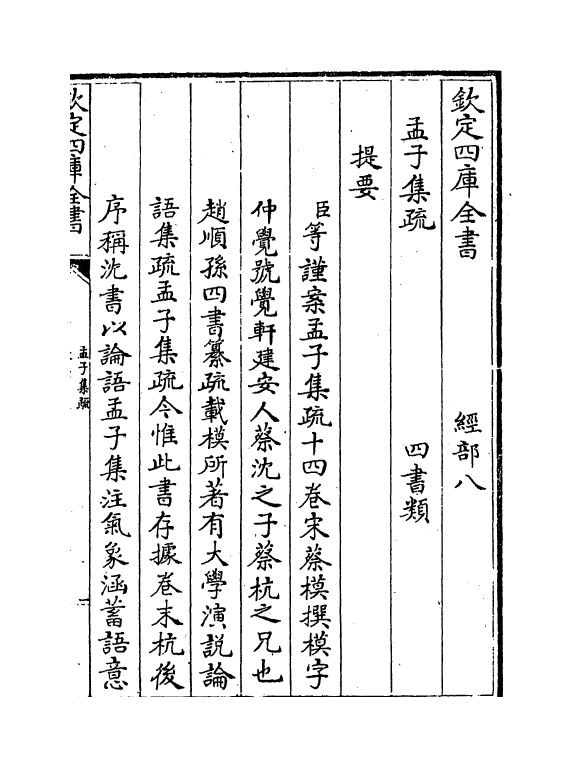 欽定四庫全書　經部八
孟子集疏　四書類
提要
臣等謹案孟子集疏十四卷宋蔡模撰模字
仲覺號覺軒建安人蔡沈之子蔡杭之兄也
趙順孫四書纂疏載模所著有大學演說論
語集疏孟子集疏今惟此書存據卷末杭後
序稱沈書以論語孟子集注氣象涵蓄語意
欽定四庫全書
孟子集疏
一